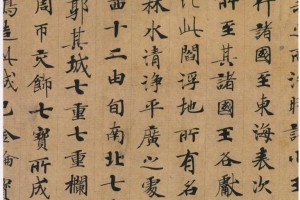 行諸國至東海表次
所至其諸國王各獻
比此閻浮地所有名
林水清淨平廣之處
西十二由旬南北七
郭其城七重七重欄
周帀交飾七寶所成
造此城已金輪寶